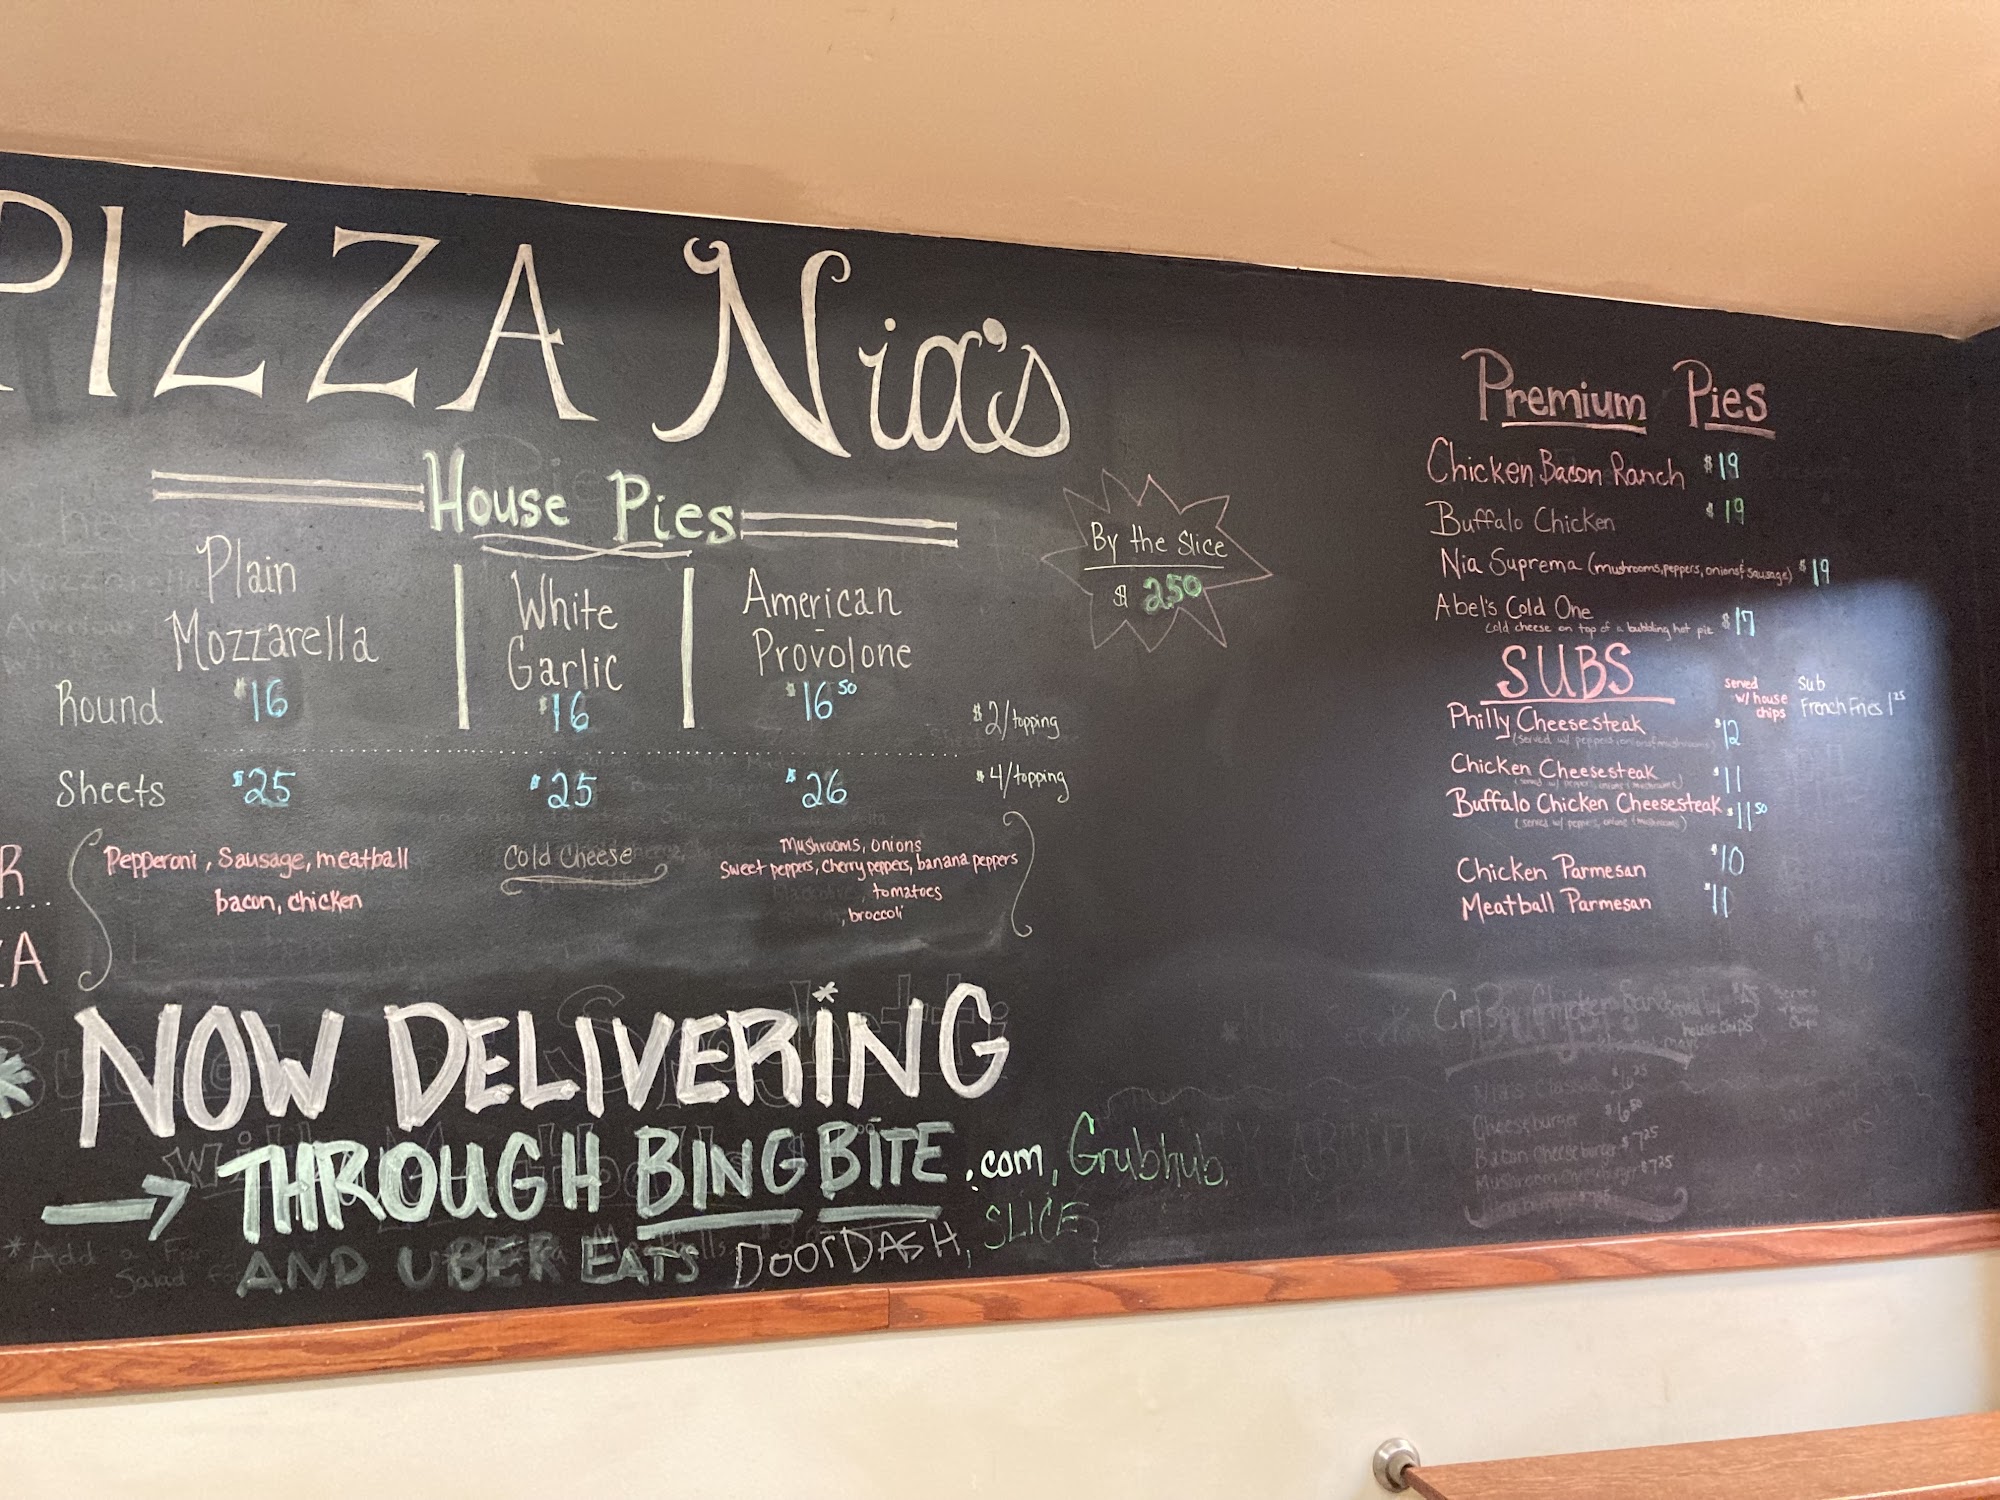 PIZZA Nia's
House Pies
Plain
Mozzarella
White
Garlic
American
Provolone
Round $16 $16 $16 50 $2/topping
Sheets $25 $25 $26 $4/topping
Pepperoni, Sausage, meatball
bacon, chicken
Cold Cheese
Mushrooms, onions
Sweet peppers, cherry peppers, banana peppers
, tomatoes
, broccoli
R
A
By the Slice
$ 2.50
* NOW DELIVERING
THROUGH BING BITE .com, Grubhub,
AND UBER EATS DOORDASH, SLICE
*Add a
Salad
Premium Pies
Chicken Bacon Ranch $19
Buffalo Chicken $19
Nia Suprema (mushrooms, peppers, onions & sausage) $19
Abel's Cold One $17
cold cheese on top of a bubbling hot pie
SUBS
served
w/ house
chips
Sub
French Fries 1 25
Philly Cheesesteak $12
(served w/ peppers, onions & mushrooms)
Chicken Cheesesteak $11
(served w/ peppers, onions & mushrooms)
Buffalo Chicken Cheesesteak $11 50
(served w/ peppers, onions & mushrooms)
Chicken Parmesan $10
Meatball Parmesan $11
house chips
Cheeseburger $6 50
Bacon Cheeseburger $7 25
Mushroom Cheeseburger $7 25